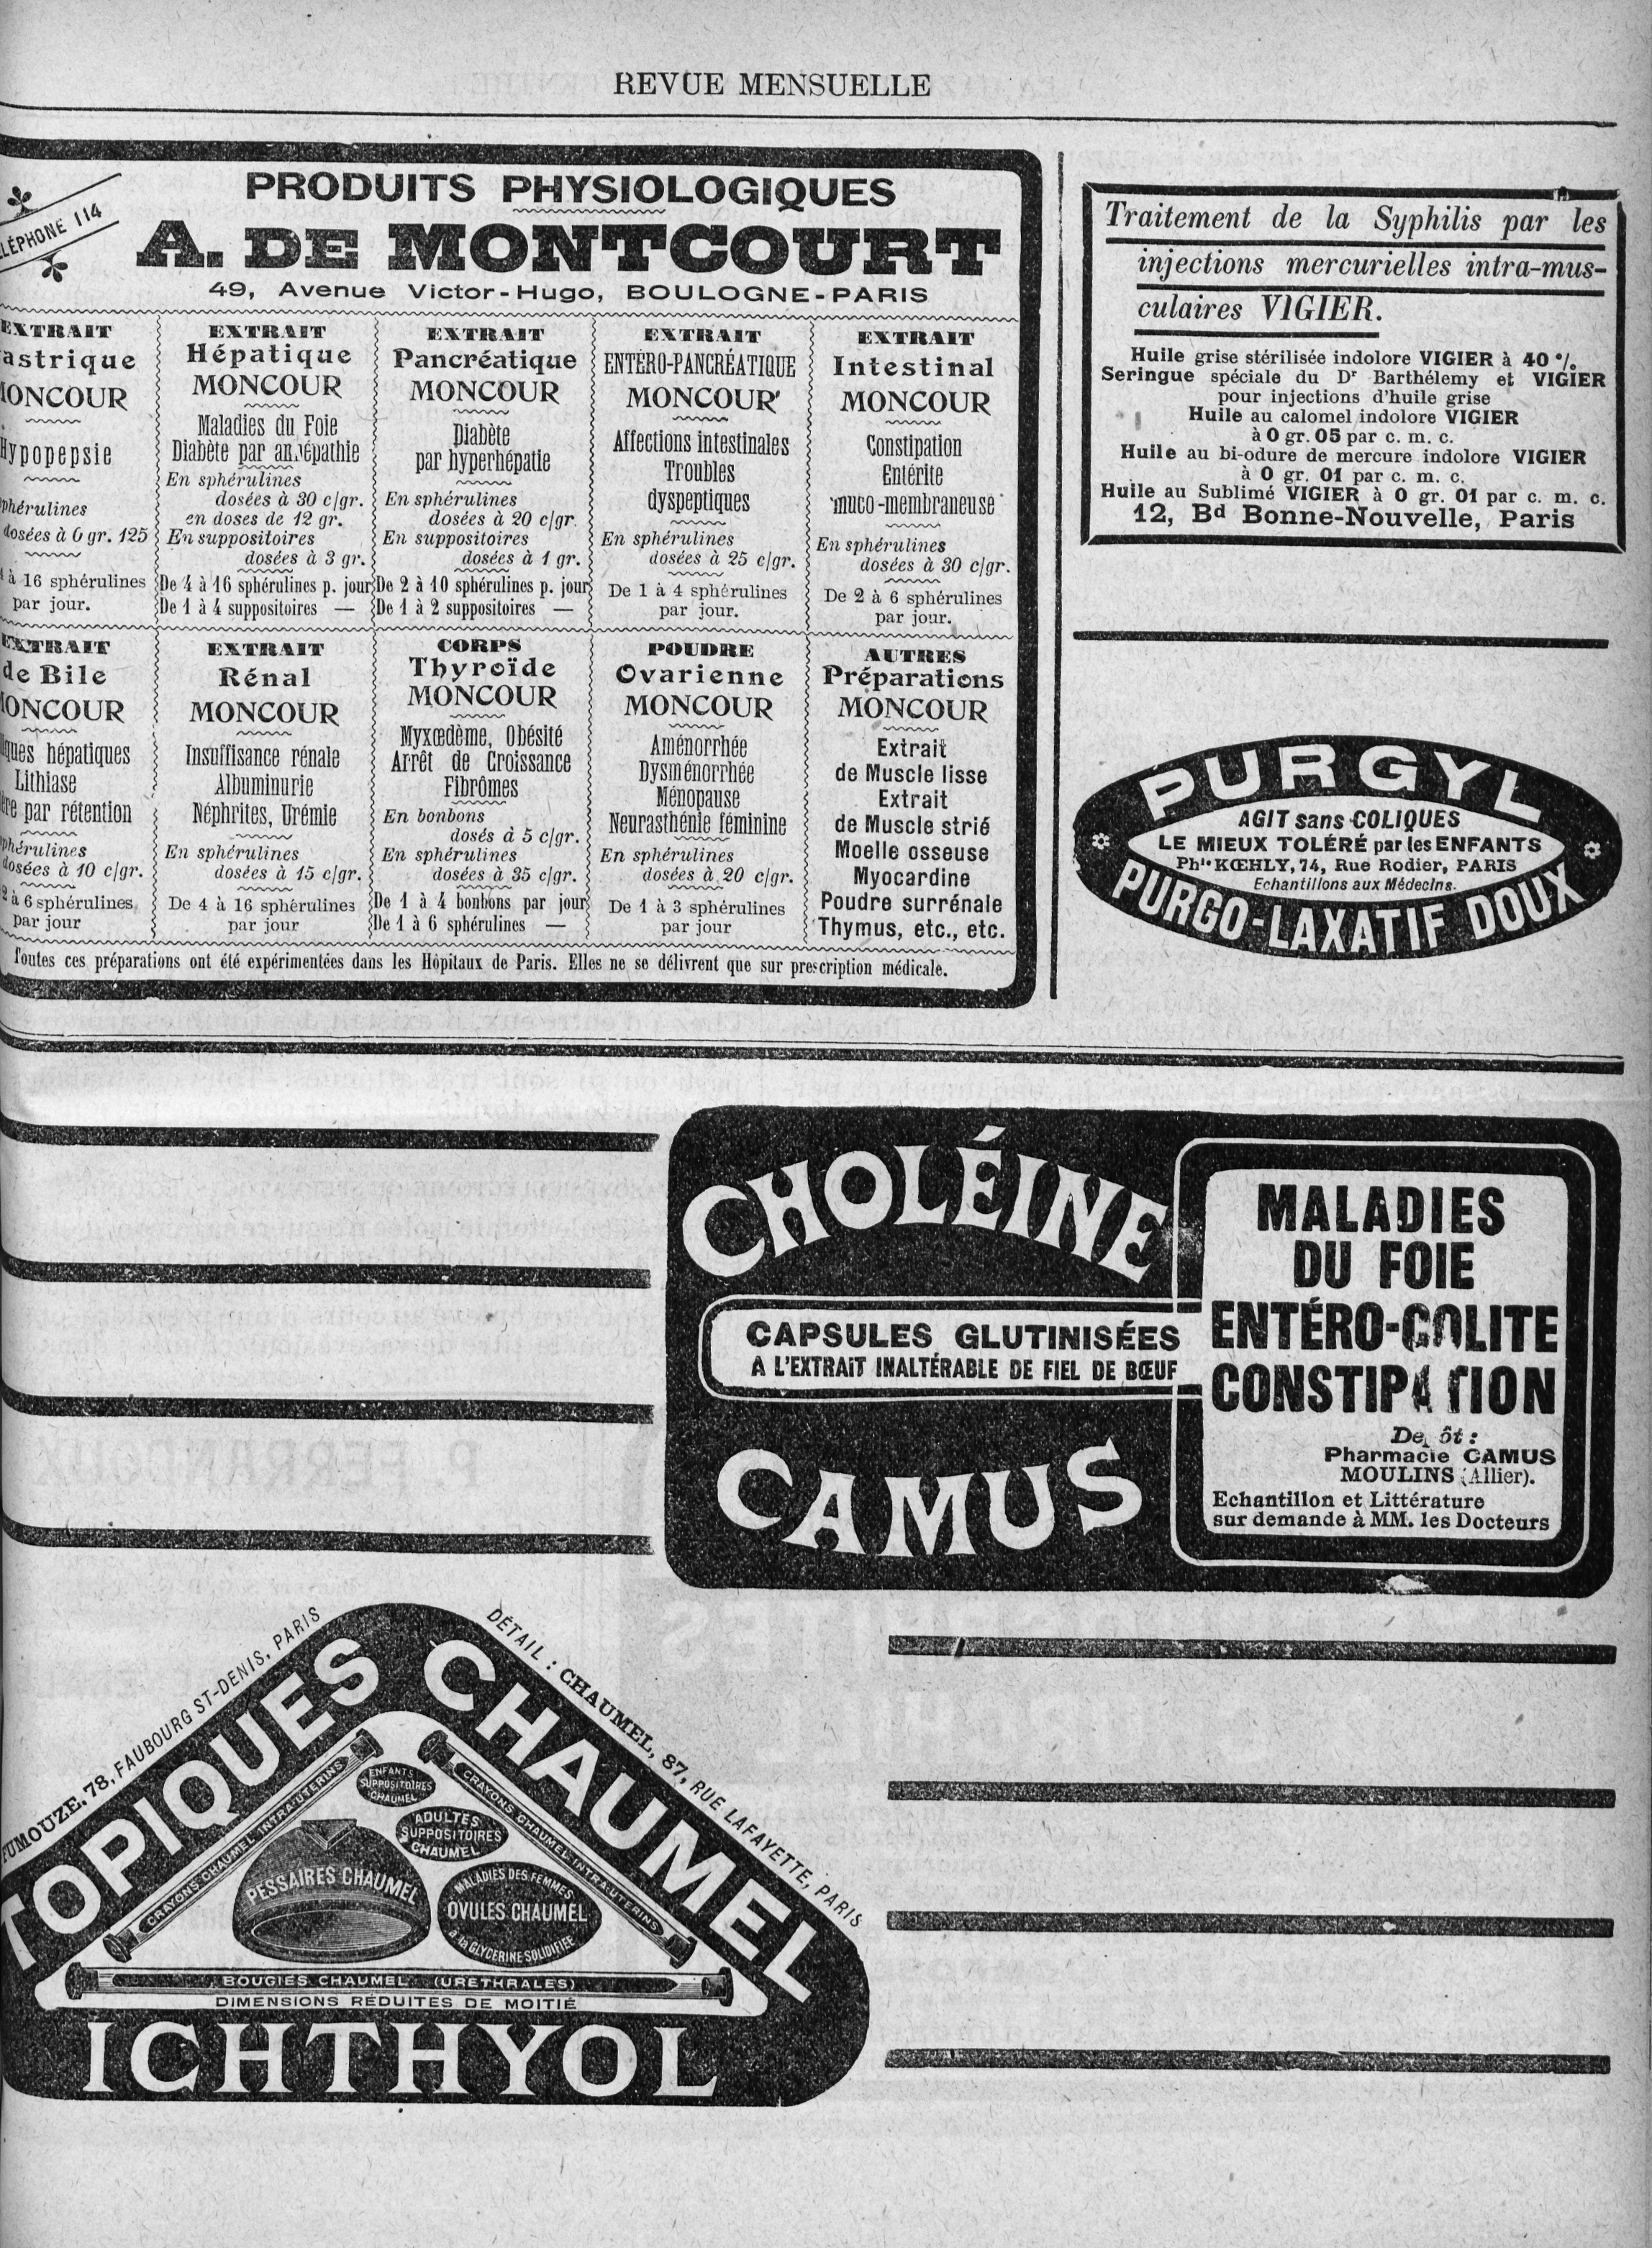 REVUE MENSUELLE
PRODUITS PHYSIOLOGIQUES
LÉPHONE 114
A. DE MONTCOURT
49, Avenue Victor-Hugo, BOULOGNE-PARIS
EXTRAIT
astrique
MONCOUR
Hypopepsie
sphérulines
dosées à 0 gr. 125
à 16 sphérulines
par jour.
EXTRAIT
Hépatique
MONCOUR
Maladies du Foie
Diabète par anhépathie
En sphérulines
dosées à 30 c/gr.
en doses de 12 gr.
En suppositoires
dosées à 3 gr.
De 4 à 16 sphérulines p. jour
De 1 à 4 suppositoires —
EXTRAIT
Pancréatique
MONCOUR
Diabète
par hyperhépatie
En sphérulines
dosées à 20 c/gr.
En suppositoires
dosées à 1 gr.
De 2 à 10 sphérulines p. jour
De 1 à 2 suppositoires —
EXTRAIT
ENTÉRO-PANCRÉATIQUE
MONCOUR
Affections intestinales
Troubles
dyspeptiques
En sphérulines
dosées à 25 c/gr.
De 1 à 4 sphérulines
par jour.
EXTRAIT
Intestinal
MONCOUR
Constipation
Entérite
muco-membraneuse
En sphérulines
dosées à 30 c/gr.
De 2 à 6 sphérulines
par jour.
EXTRAIT
de Bile
MONCOUR
iques hépatiques
Lithiase
ère par rétention
sphérulines
dosées à 10 c/gr.
2 à 6 sphérulines
par jour
EXTRAIT
Rénal
MONCOUR
Insuffisance rénale
Albuminurie
Néphrites, Urémie
En sphérulines
dosées à 15 c/gr.
De 4 à 16 sphérulines
par jour
CORPS
Thyroïde
MONCOUR
Myxœdème, Obésité
Arrêt de Croissance
Fibrômes
En bonbons
dosés à 5 c/gr.
En sphérulines
dosées à 35 c/gr.
De 1 à 4 bonbons par jour
De 1 à 6 sphérulines —
POUDRE
Ovarienne
MONCOUR
Aménorrhée
Dysménorrhée
Ménopause
Neurasthénie féminine
En sphérulines
dosées à 20 c/gr.
De 1 à 3 sphérulines
par jour
AUTRES
Préparations
MONCOUR
Extrait
de Muscle lisse
Extrait
de Muscle strié
Moelle osseuse
Myocardine
Poudre surrénale
Thymus, etc., etc.
Toutes ces préparations ont été expérimentées dans les Hôpitaux de Paris. Elles ne se délivrent que sur prescription médicale.
Traitement de la Syphilis par les
injections mercurielles intra-mus-
culaires VIGIER.
Huile grise stérilisée indolore VIGIER à 40 %.
Seringue spéciale du Dr Barthélemy et VIGIER
pour injections d'huile grise
Huile au calomel indolore VIGIER
à 0 gr. 05 par c. m. c.
Huile au bi-odure de mercure indolore VIGIER
à 0 gr. 01 par c. m. c.
Huile au Sublimé VIGIER à 0 gr. 01 par c. m. c.
12, Bd Bonne-Nouvelle, Paris
PURGYL
AGIT sans COLIQUES
LE MIEUX TOLÉRÉ par les ENFANTS
Phie KŒHLY, 74, Rue Rodier, PARIS
Echantillons aux Médecins.
PURGO-LAXATIF DOUX
CHOLÉINE
CAPSULES GLUTINISÉES
A L'EXTRAIT INALTÉRABLE DE FIEL DE BŒUF
CAMUS
MALADIES
DU FOIE
ENTÉRO-COLITE
CONSTIPATION
Depôt :
Pharmacie CAMUS
MOULINS (Allier).
Echantillon et Littérature
sur demande à MM. les Docteurs
FUMOUZE, 78, FAUBOURG ST-DENIS, PARIS
DÉTAIL : CHAUMEL, 87, RUE LAFAYETTE, PARIS
TOPIQUES CHAUMEL
CRAYONS CHAUMEL INTRA-UTERINS
CRAYONS CHAUMEL INTRA-UTERINS
ENFANTS
SUPPOSITOIRES
CHAUMEL
ADULTES
SUPPOSITOIRES
CHAUMEL
PESSAIRES CHAUMEL
MALADIES DES FEMMES
OVULES CHAUMEL
à la GLYCERINE SOLIDIFIEE
BOUGIES CHAUMEL (URETHRALES)
DIMENSIONS RÉDUITES DE MOITIÉ
ICHTHYOL